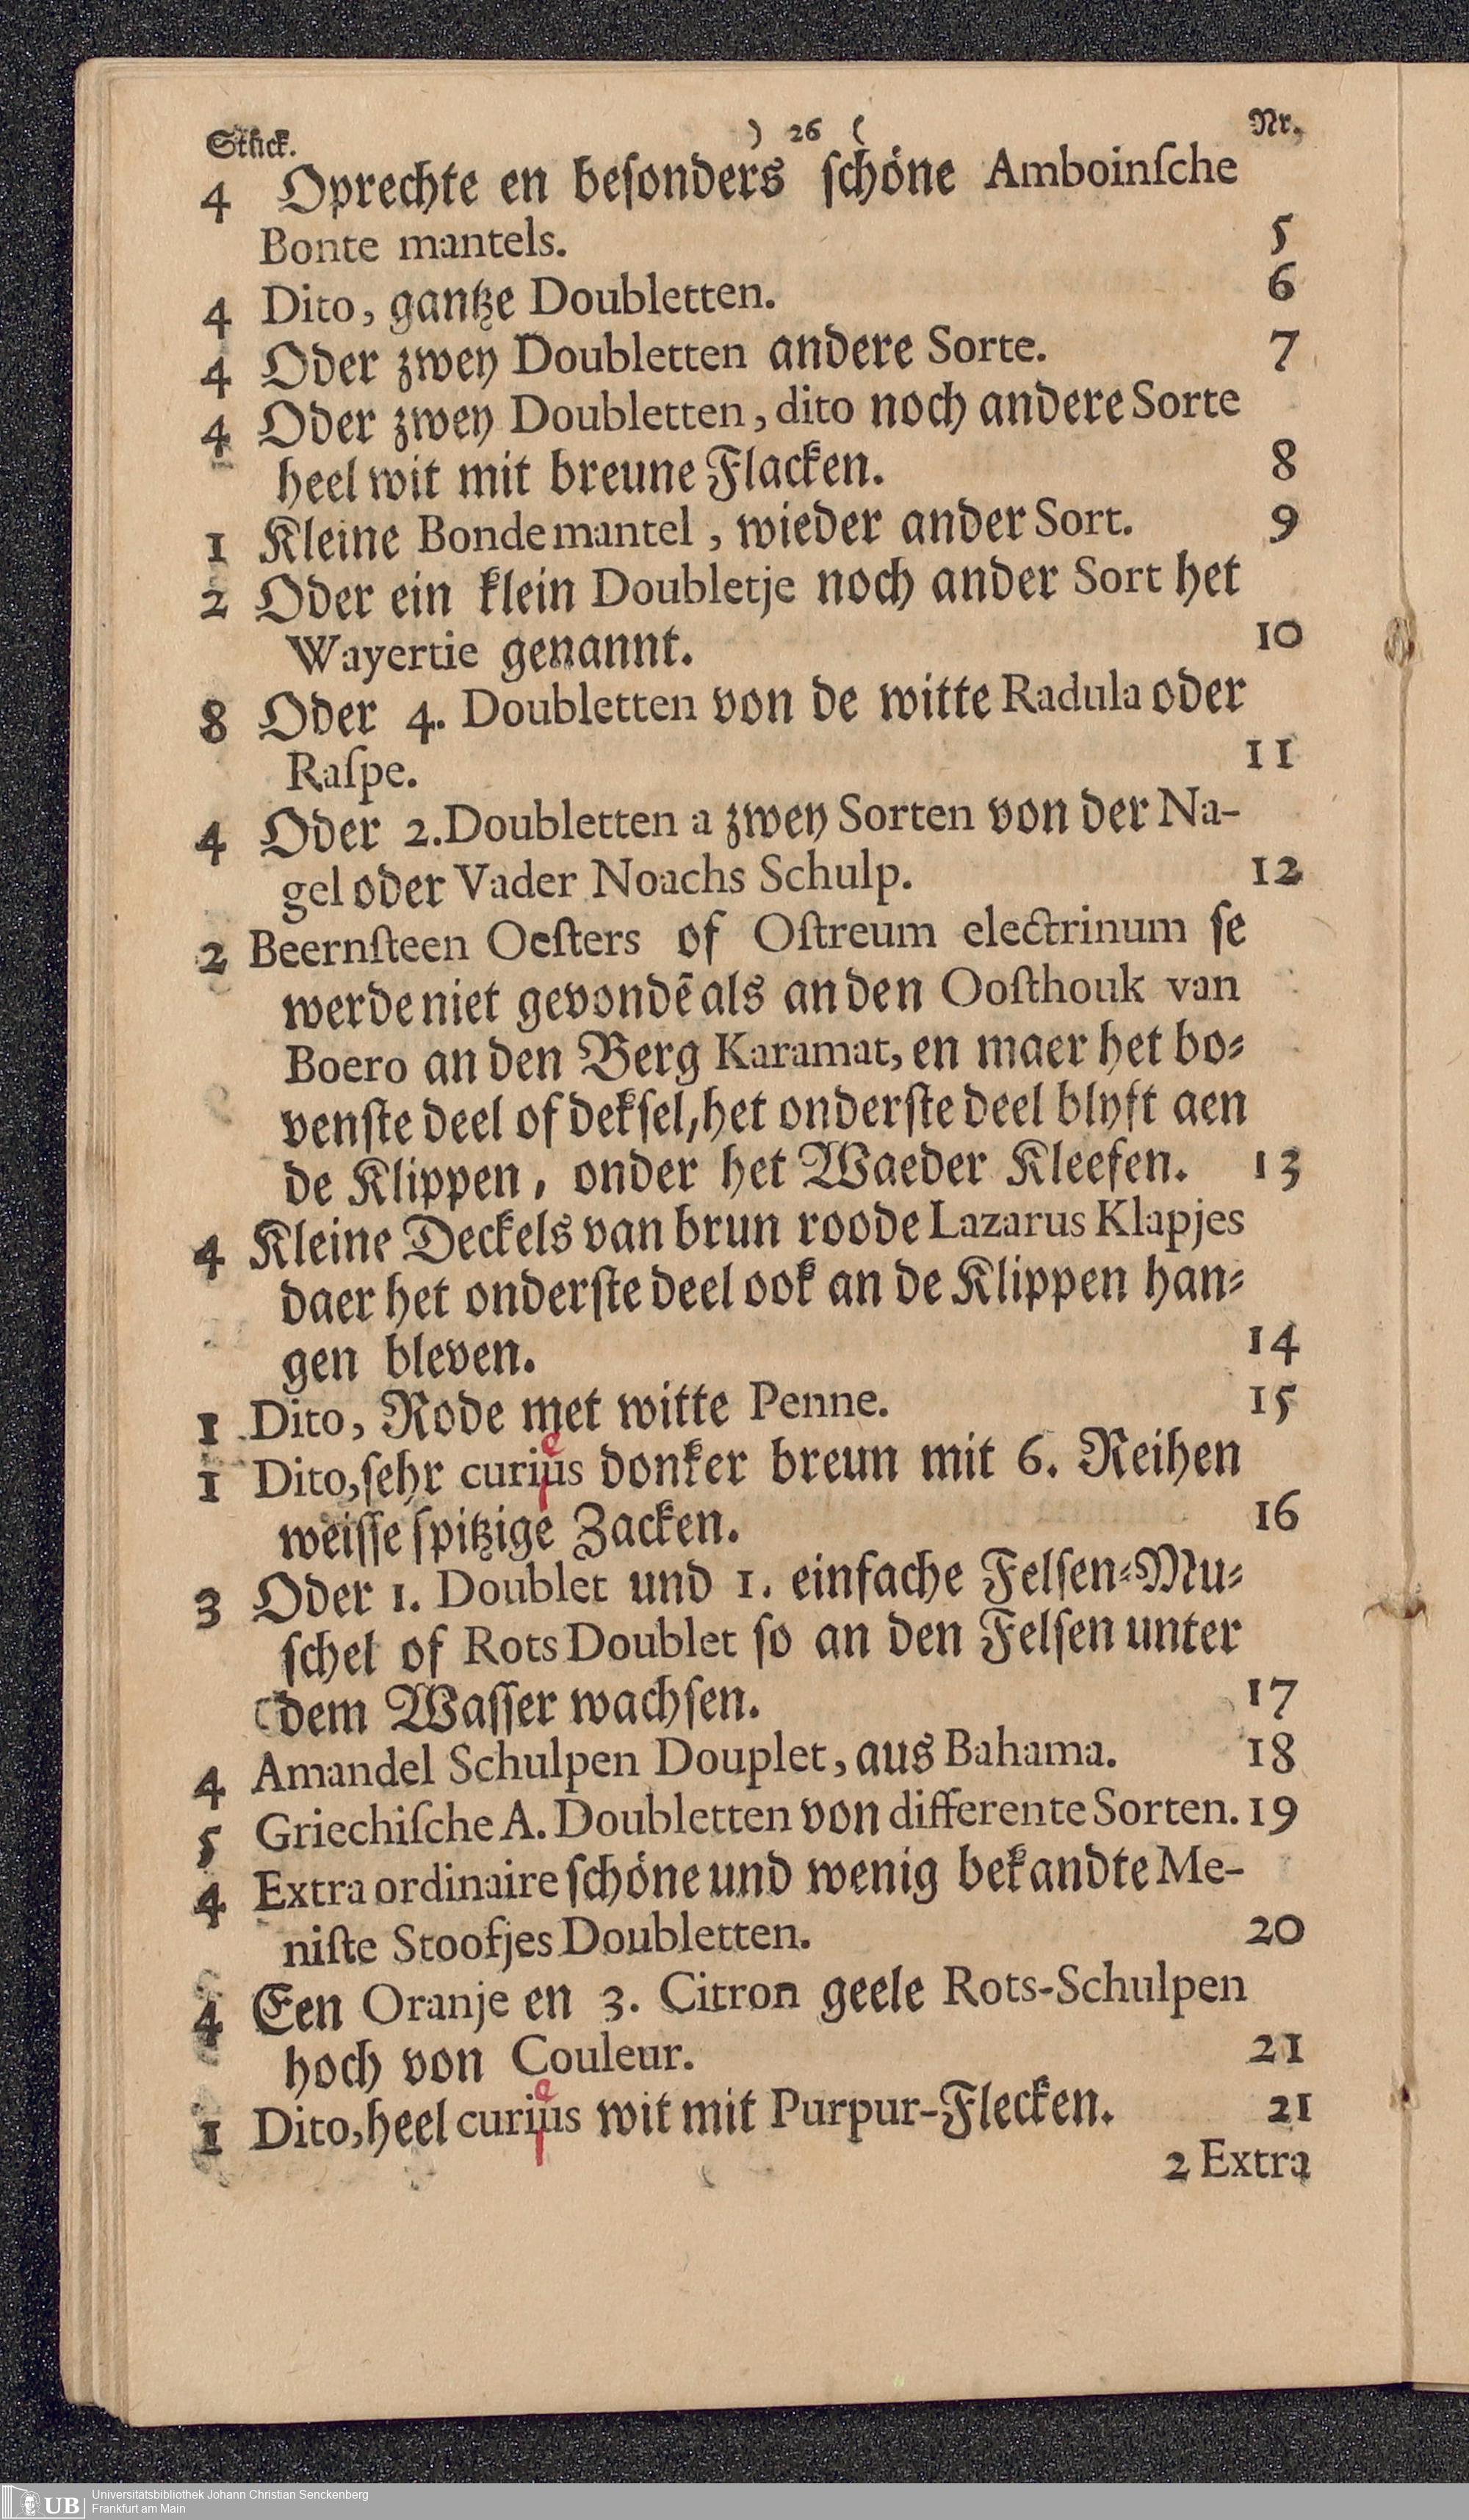 Stück. ) 26 ( Nr.
4 Oprechte en besonders ſchöne Amboinſche
Bonte mantels. 5
4 Dito, gantze Doubletten. 6
4 Oder zwey Doubletten andere Sorte. 7
4 Oder zwey Doubletten, dito noch andere Sorte
heel wit mit breune Flacken. 8
1 Kleine Bonde mantel, wieder ander Sort. 9
2 Oder ein klein Doubletje noch ander Sort het
Wayertie genannt. 10
8 Oder 4. Doubletten von de witte Radula oder
Raſpe. 11
4 Oder 2. Doubletten a zwey Sorten von der Na-
gel oder Vader Noachs Schulp. 12
2 Beernſteen Oeſters of Oſtreum electrinum ſe
werde niet gevondē als an den Ooſthouk van
Boero an den Berg Karamat, en maer het bo-
venſte deel of dekſel, het onderſte deel blyft aen
de Klippen, onder het Waeder Kleefen. 13
4 Kleine Deckels van brun roode Lazarus Klapjes
daer het onderſte deel ook an de Klippen han-
gen bleven. 14
1 Dito, Rode met witte Penne. 15
1 Dito, ſehr curius donker breun mit 6. Reihen
weiſſe ſpitzige Zacken. 16
3 Oder 1. Doublet und 1. einfache Felſen-Mu-
ſchel of Rots Doublet ſo an den Felſen unter
dem Waſſer wachſen. 17
4 Amandel Schulpen Douplet, aus Bahama. 18
5 Griechiſche A. Doubletten von differente Sorten. 19
4 Extra ordinaire ſchöne und wenig bekandte Me-
niſte Stoofjes Doubletten. 20
4 Een Oranje en 3. Citron geele Rots-Schulpen
hoch von Couleur. 21
1 Dito, heel curius wit mit Purpur-Flecken. 21
2 Extra
UB Universitätsbibliothek Johann Christian Senckenberg
Frankfurt am Main